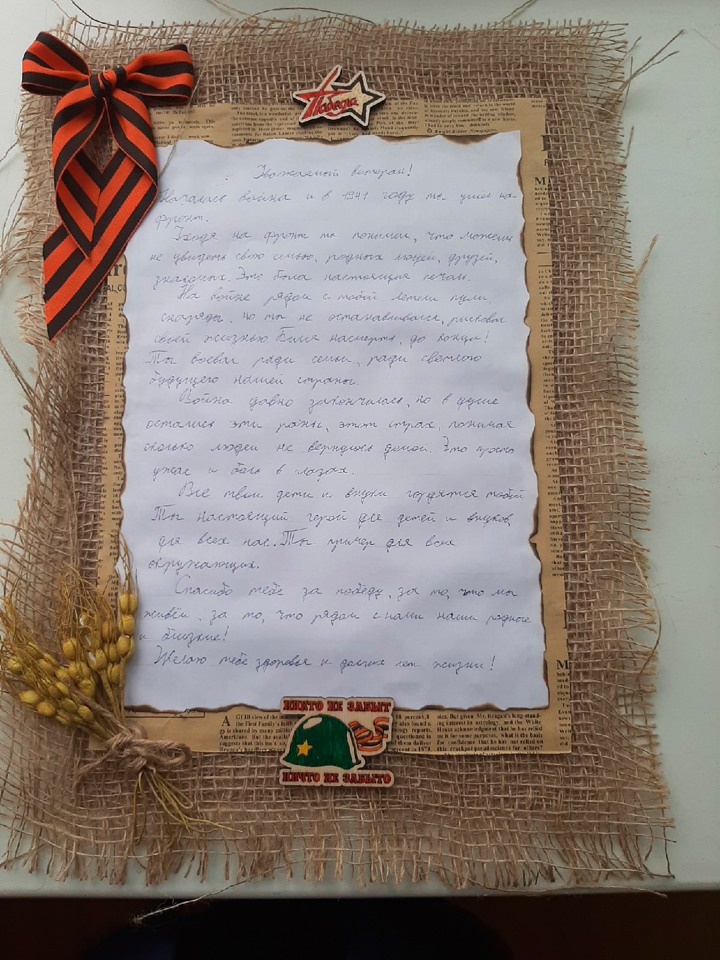 Победа
Уважаемый ветеран!
Началась война и в 1941 году ты ушёл на
фронт.
Уходя на фронт ты понимал, что можешь
не увидеть свою семью, родных людей, друзей,
знакомых. Это была настоящая печаль.
На войне рядом с тобой летели пули,
снаряды, но ты не останавливался, рисковал
своей жизнью. Бился насмерть, до конца!
Ты воевал ради семьи, ради светлого
будущего нашей страны.
Война давно закончилась, но в душе
остались эти раны, этот страх, понимая
сколько людей не вернулось домой. Это просто
ужас и боль в глазах.
Все твои дети и внуки гордятся тобой
Ты настоящий герой для детей и внуков,
для всех нас. Ты пример для всех
окружающих.
Спасибо тебе за победу, за то, что мы
живём, за то, что рядом с нами наши родные
и близкие!
Желаю тебе здоровья и долгих лет жизни!
НИКТО НЕ ЗАБЫТ
НИЧТО НЕ ЗАБЫТО